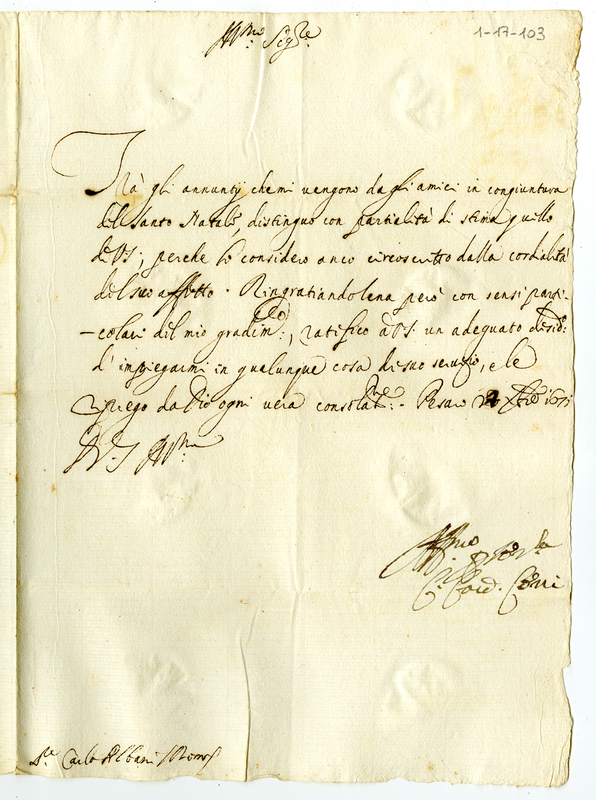 Illmo Sigre
1-17-103
Frà gli annuntij che mi vengono dagli amici in congiuntura
del Santo Natale, distinguo con partialità di stima quello
di VS; perche lo considero anco circoscritto dalla cordialità
del suo affetto. Ringratiandolena però con sensi parti-
-colari del mio gradimto:, ratifico à VS: un adeguato desido:
d'impiegarmi in qualunque cosa di suo servizio, e le
priego da Dio ogni vera consolatne:. Pesaro Xbre 1671
D V.S Illma
Affmo
Card.
Sre Carlo Albani Roma